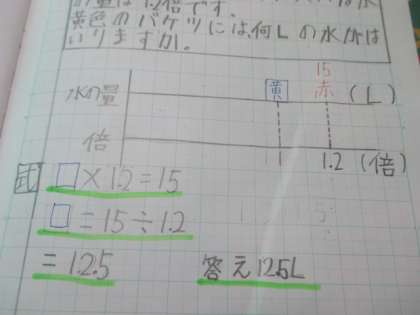 の量は1.2倍です。
黄色のバケツには、何Lの水がは
いりますか。
15
水の量 黄 赤 (L)
倍 1 1.2 (倍)
式 □×1.2=15
□=15÷1.2
=12.5
答え12.5L